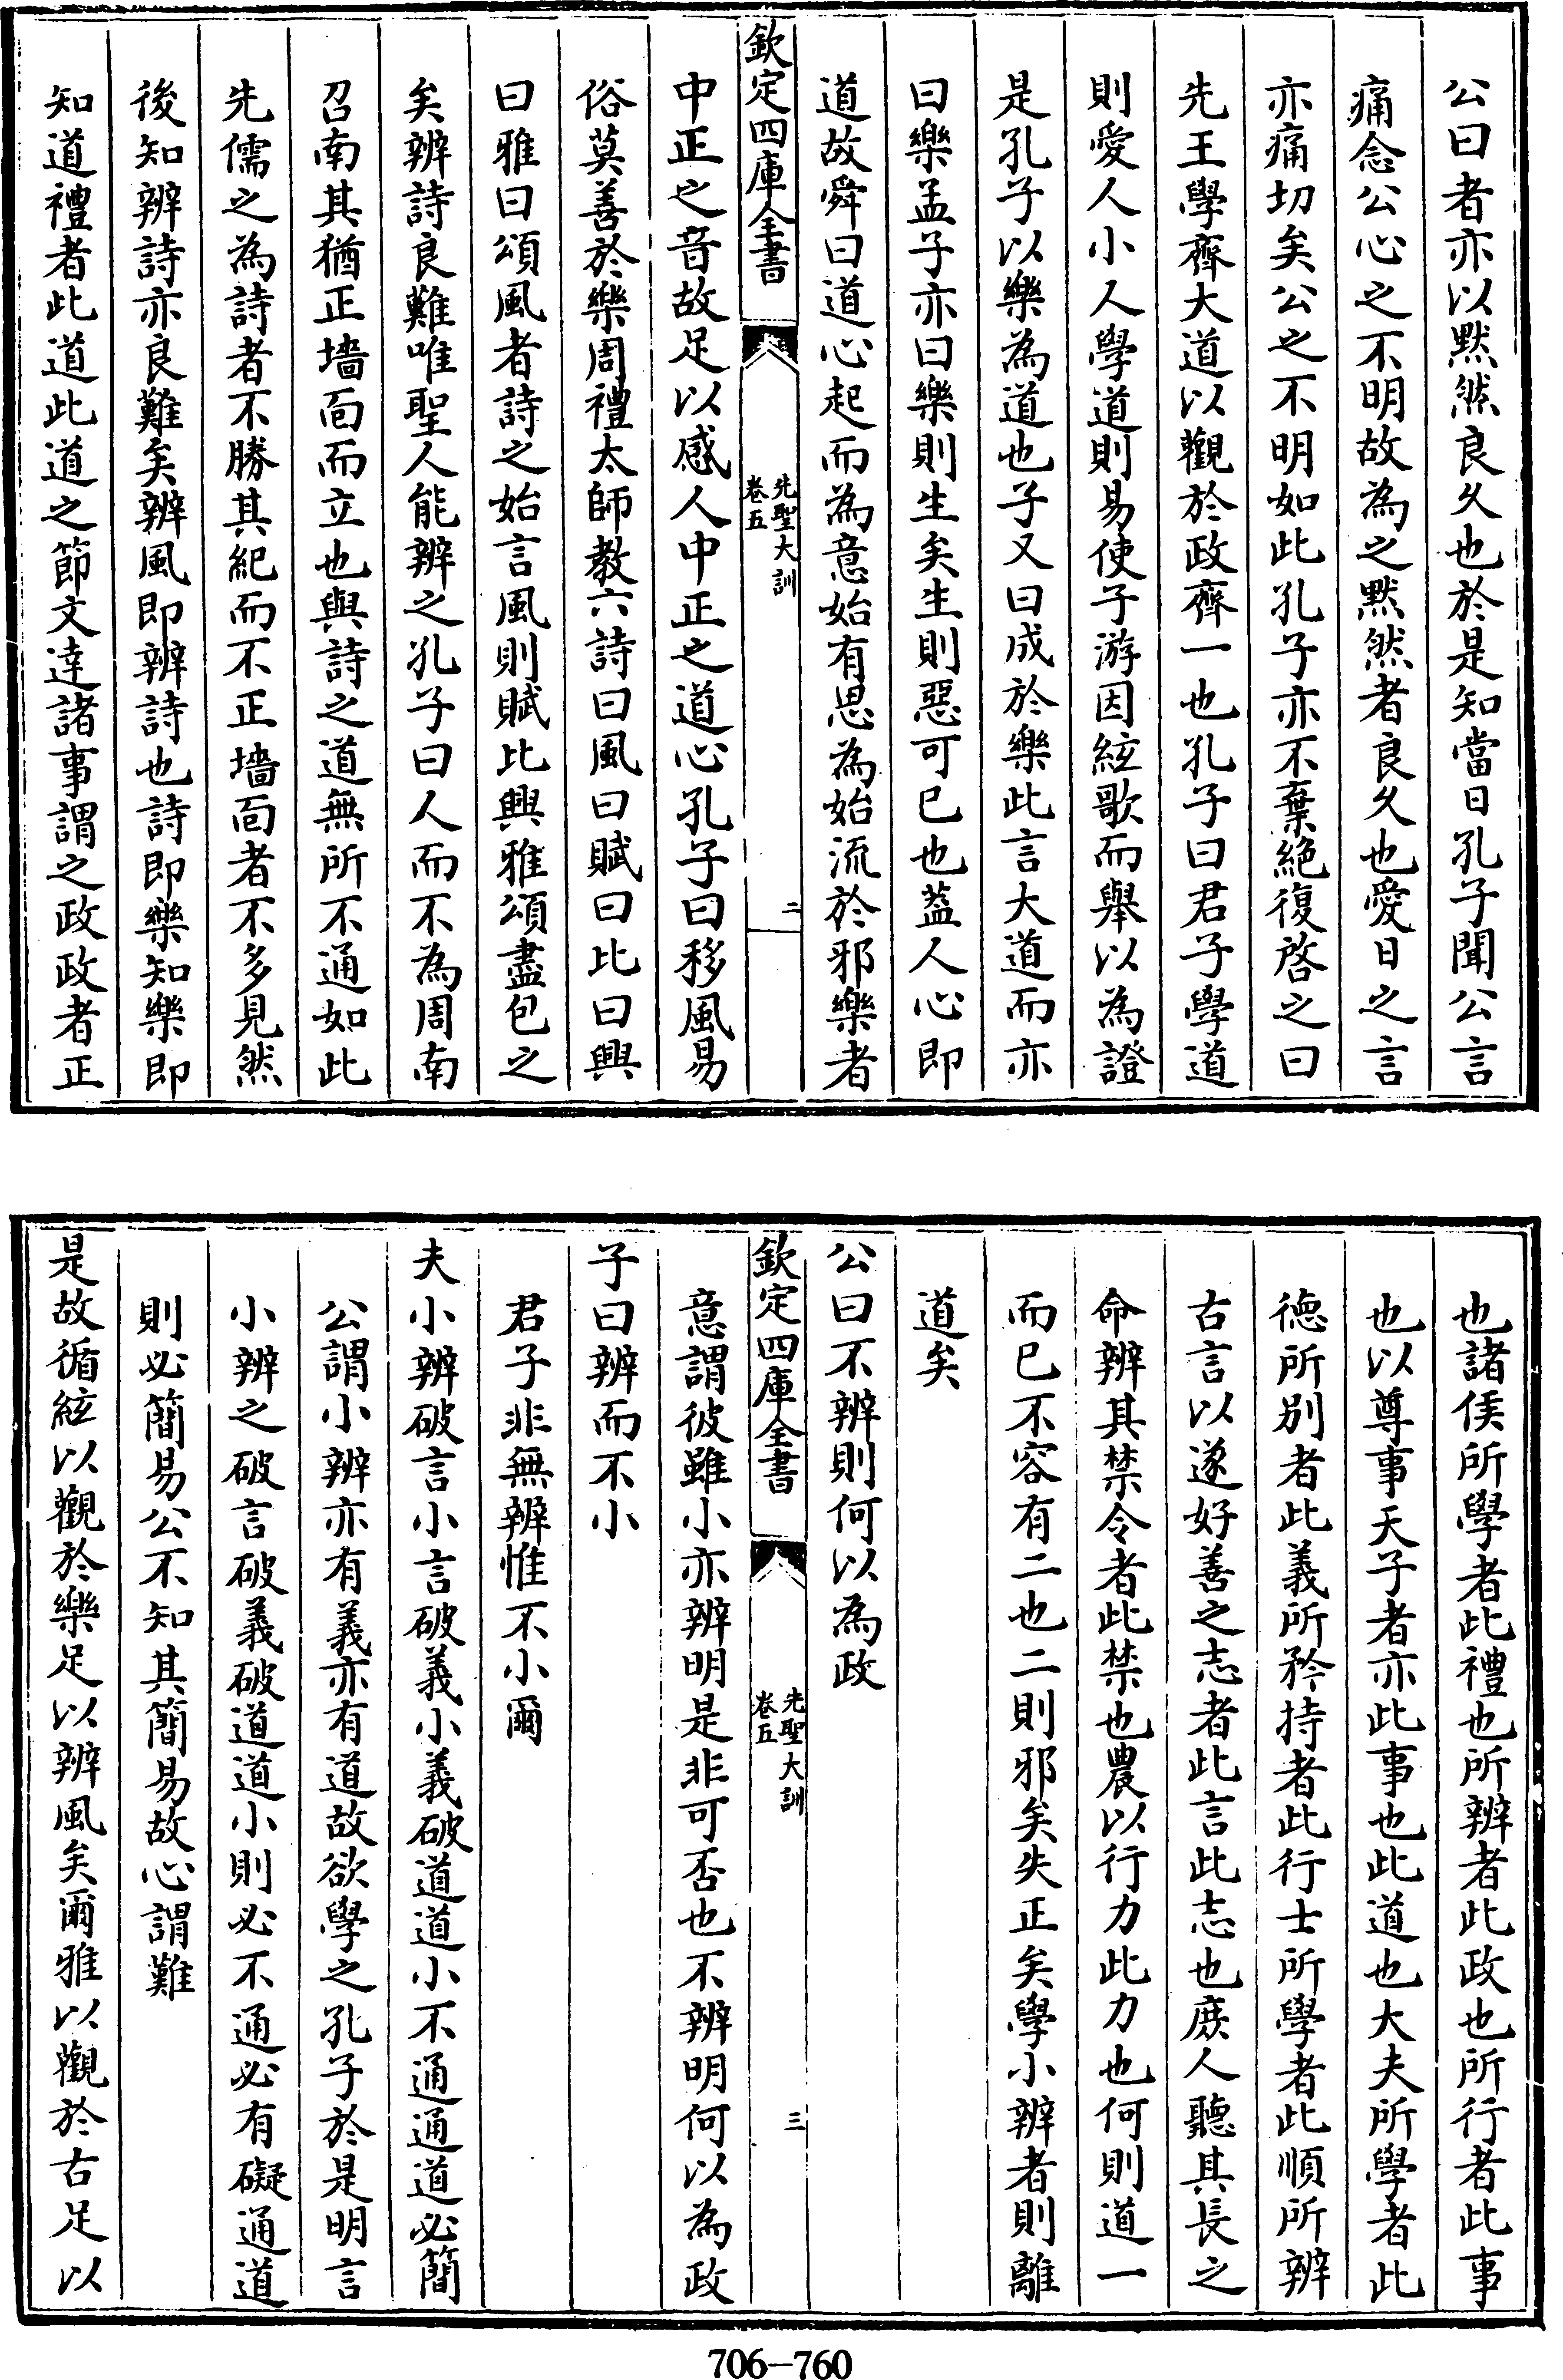 公曰者亦以默然良久也於是知當日孔子聞公言
痛念公心之不明故為之默然者良久也愛日之言
亦痛切矣公之不明如此孔子亦不棄絶復啓之曰
先王學齊大道以觀於政齊一也孔子曰君子學道
則愛人小人學道則易使子游因絃歌而舉以為證
是孔子以樂為道也子又曰成於樂此言大道而亦
曰樂孟子亦曰樂則生矣生則惡可已也葢人心即
道故舜曰道心起而為意始有思為始流於邪樂者
欽定四庫全書
先聖大訓
卷五
二
中正之音故足以感人中正之道心孔子曰移風易
俗莫善於樂周禮太師教六詩曰風曰賦曰比曰興
曰雅曰頌風者詩之始言風則賦比興雅頌盡包之
矣辨詩良難唯聖人能辨之孔子曰人而不為周南
召南其猶正墻靣而立也與詩之道無所不通如此
先儒之為詩者不勝其紀而不正墻靣者不多見然
後知辨詩亦良難矣辨風即辨詩也詩即樂知樂即
知道禮者此道此道之節文達諸事謂之政政者正
也諸侯所學者此禮也所辨者此政也所行者此事
也以尊事天子者亦此事也此道也大夫所學者此
德所別者此義所矜持者此行士所學者此順所辨
古言以遂好善之志者此言此志也庶人聽其長之
命辨其禁令者此禁也農以行力此力也何則道一
而已不容有二也二則邪矣失正矣學小辨者則離
道矣
公曰不辨則何以為政
欽定四庫全書
先聖大訓
卷五
三
意謂彼雖小亦辨明是非可否也不辨明何以為政
子曰辨而不小
君子非無辨惟不小爾
夫小辨破言小言破義小義破道道小不通通道必簡
公謂小辨亦有義亦有道故欲學之孔子於是明言
小辨之破言破義破道道小則必不通必有礙通道
則必簡易公不知其簡易故心謂難
是故循絃以觀於樂足以辨風矣爾雅以觀於古足以
706—760